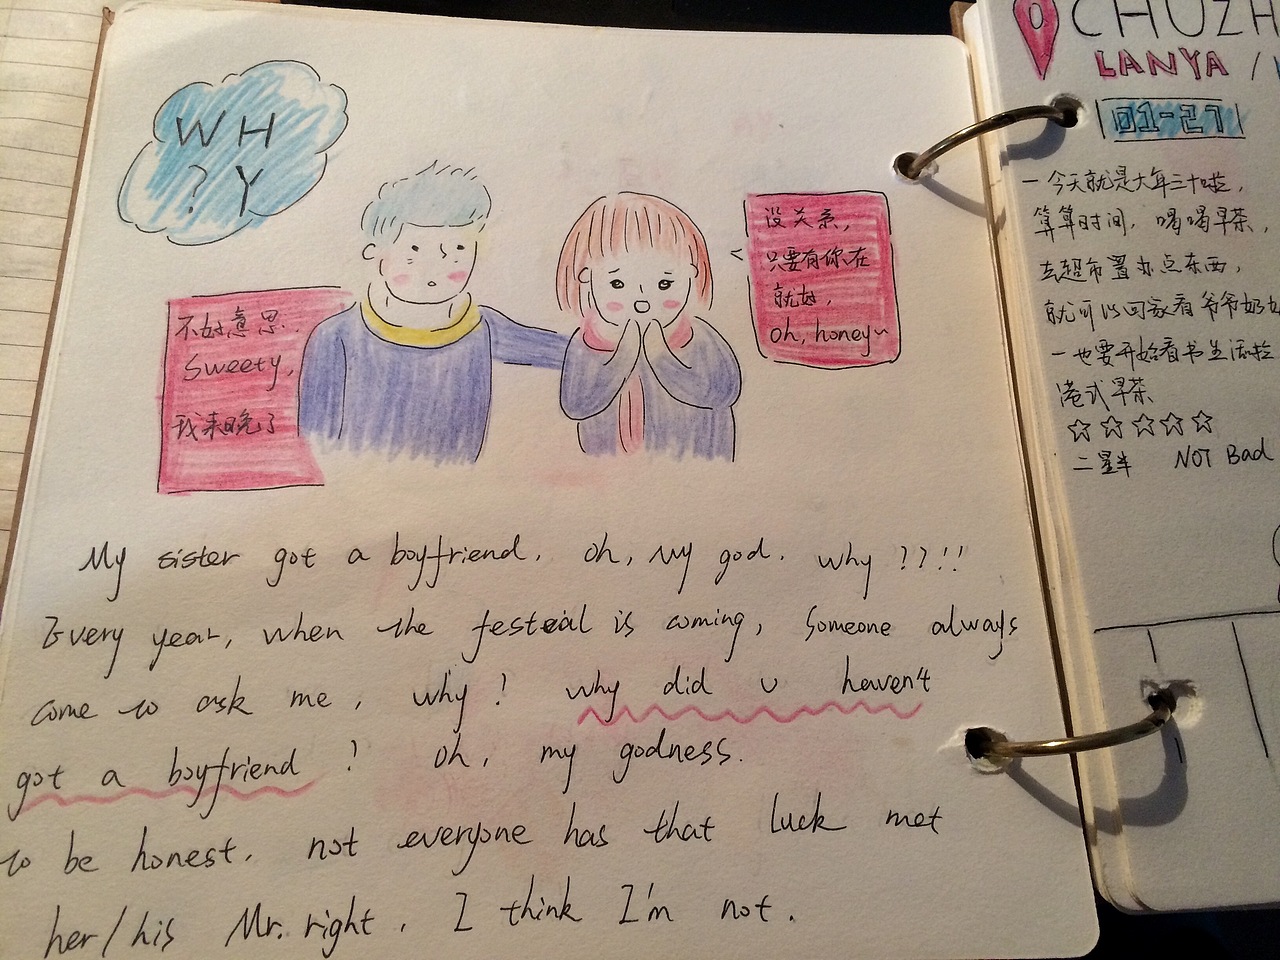 WH
?Y
不好意思,
Sweety,
我来晚了
没关系,
只要有你在
就好,
oh, honey~
My sister got a boyfriend. oh, my god. why ??!!
Every year, when the festeial is coming, Someone always
come to ask me, why? why did u haven't
got a boyfriend? oh, my godness.
to be honest. not everyone has that luck met
her/his Mr. right. I think I'm not.
CHUZH
LANYA /
01-27
一 今天就是大年三十啦,
算算时间, 喝喝早茶,
去超市置办点东西,
就可以回家看爷爷奶奶
一 也要开始看书生活啦
港式早茶
☆☆☆☆☆
二星半 NOT Bad